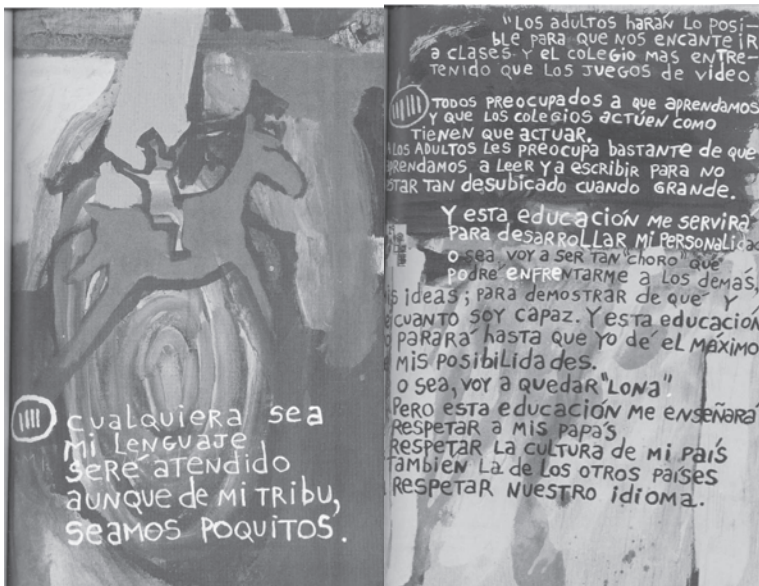 IIII CUALQUIERA SEA
MI LENGUAJE
SERÉ ATENDIDO
AUNQUE DE MI TRIBU,
SEAMOS POQUITOS.
"LOS ADULTOS HARÁN LO POSI-
BLE PARA QUE NOS ENCANTE IR
A CLASES Y EL COLEGIO MAS ENTRE-
TENIDO QUE LOS JUEGOS DE VIDEO
IIIII TODOS PREOCUPADOS A QUE APRENDAMOS
Y QUE LOS COLEGIOS ACTÚEN COMO
TIENEN QUE ACTUAR.
A LOS ADULTOS LES PREOCUPA BASTANTE DE QUE
PRENDAMOS A LEER Y A ESCRIBIR PARA NO
STAR TAN DESUBICADO CUANDO GRANDE.
Y ESTA EDUCACIÓN ME SERVIRÁ
PARA DESARROLLAR MI PERSONALIDAD
O SEA, VOY A SER TAN "CHORO" QUE
PODRÉ ENFRENTARME A LOS DEMÁS,
IS IDEAS; PARA DEMOSTRAR DE QUÉ Y
CUANTO SOY CAPAZ. Y ESTA EDUCACIÓN
PARARÁ HASTA QUE YO DÉ EL MÁXIMO
MIS POSIBILIDADES.
O SEA, VOY A QUEDAR "LONA"
PERO ESTA EDUCACIÓN ME ENSEÑARÁ
RESPETAR A MIS PAPÁS
RESPETAR LA CULTURA DE MI PAÍS
TAMBIÉN LA DE LOS OTROS PAÍSES
RESPETAR NUESTRO IDIOMA.